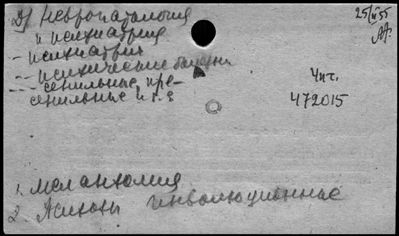 2) Невропатология
и психиатрия
-- психиатрия
--- психические болезни
---- сенильные, пре-
сенильные и т. д
25/II 55
Чит.
472015
1. Меланхолия
2. Психозы инволюционные